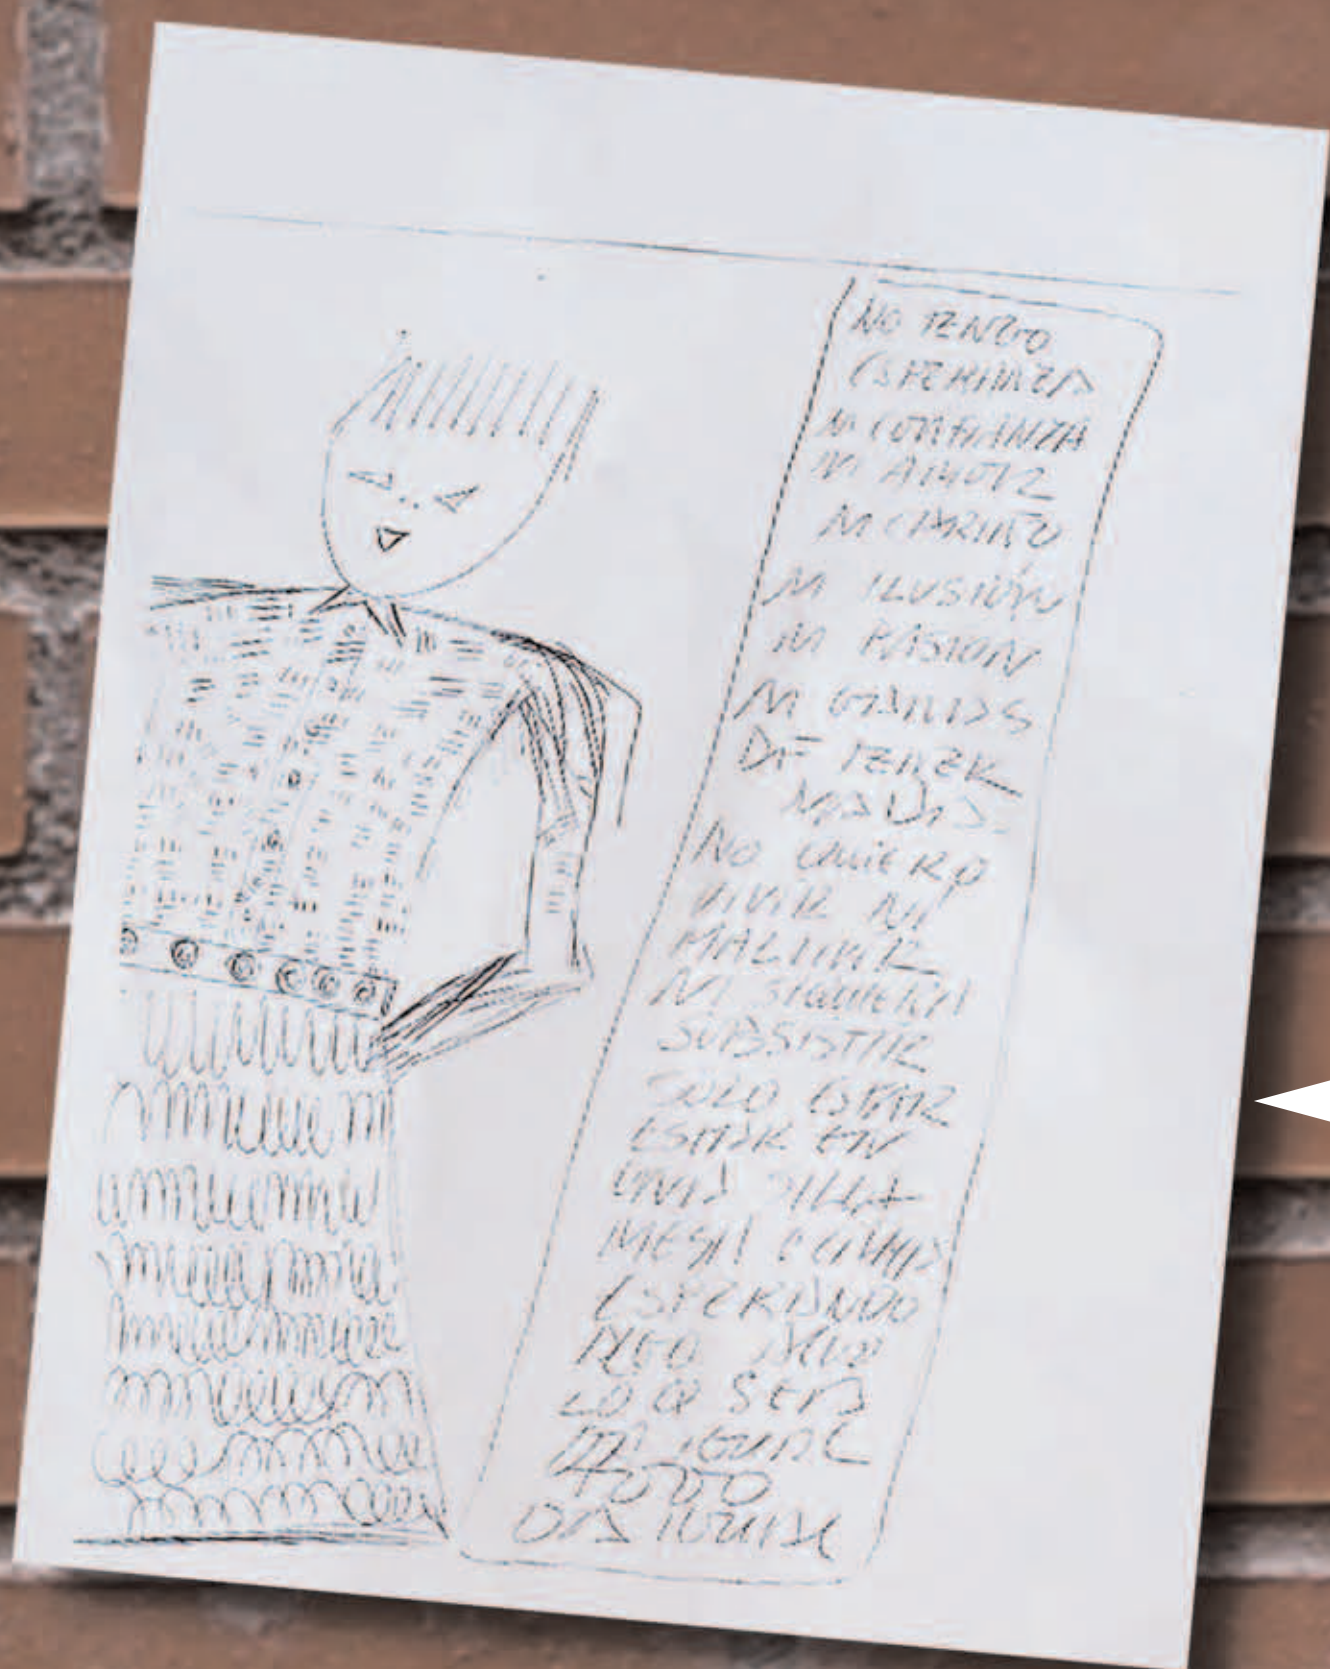 NO TENGO
ESPERANZA
NI CONFIANZA
NI AMOR
NI CARIÑO
NI ILUSIÓN
NI PASION
NI GANAS
DE TENER
NADA
NO QUIERO
VIVIR NI
MALVIVIR
NI SIQUIERA
SUBSISTIR
SOLO ESTAR
ESTAR EN
UNA SILLA
MESA O CAMA
ESPERANDO
ALGO
LO Q SEA
IGUAL
TODO
DA IGUAL